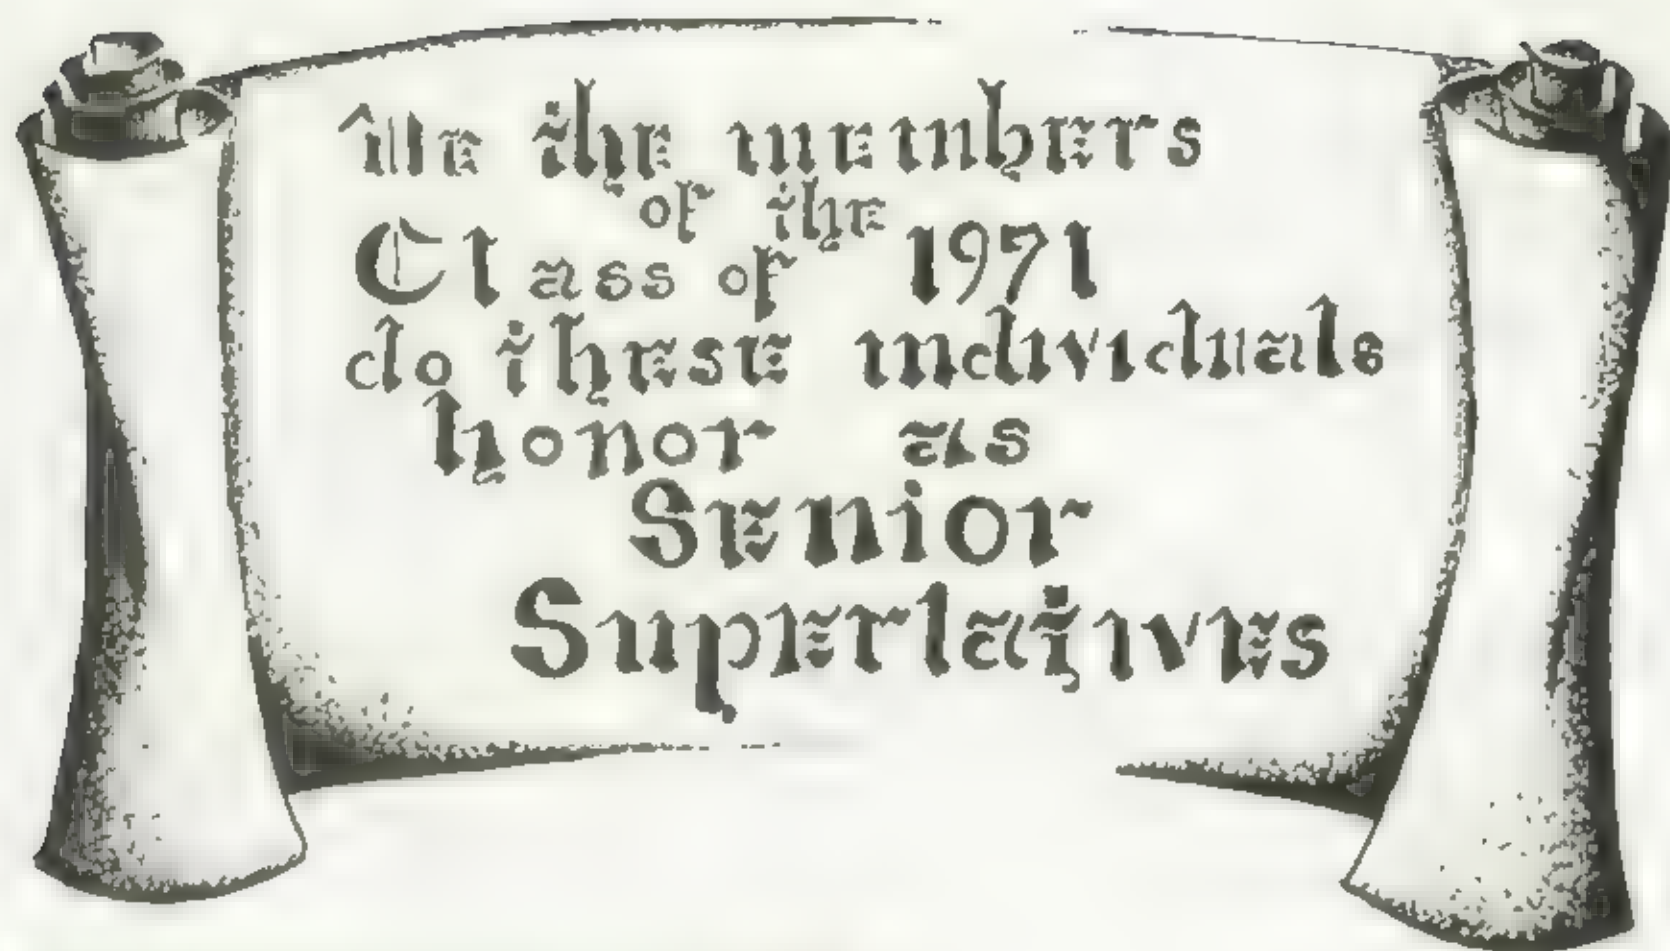 We the members
of the
Class of 1971
do these individuals
honor as
Senior
Superlatives